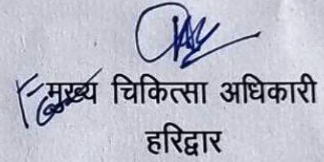 मुख्य चिकित्सा अधिकारी
हरिद्वार